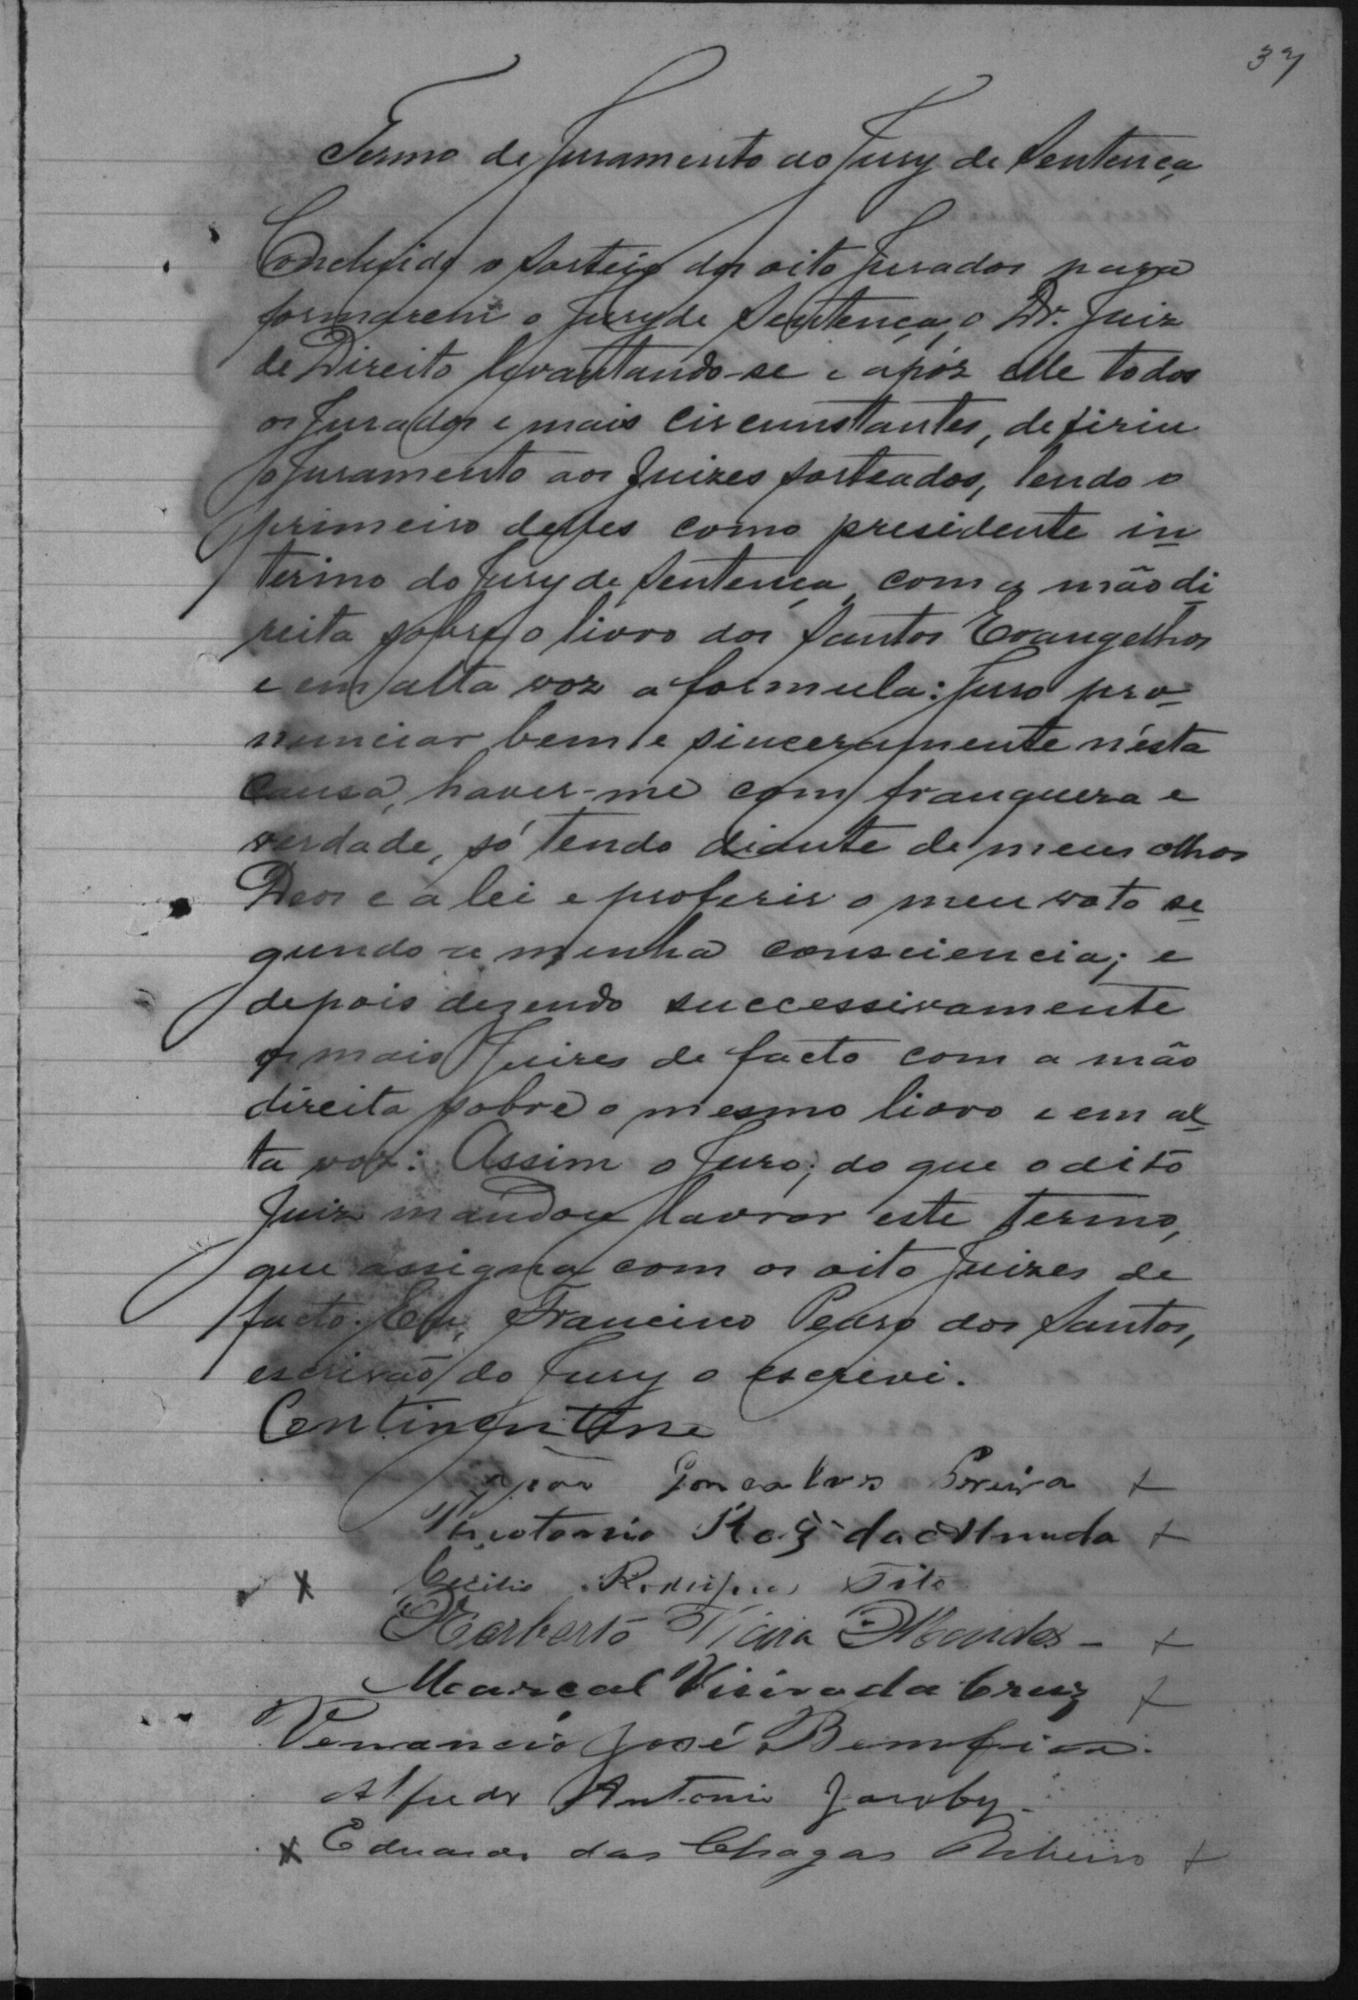 37
Termo de Juramento do Jury de Sentença
Concluido o sorteio dos oito Jurados para
formarem o Jury de Sentença, o Dr. Juiz
de Direito levantando-se e apóz elle todos
os Jurados e mais circunstantes, defiriu
o Juramento aos Juizes sorteados, lendo o
primeiro delles como presidente in
terino do Jury de Sentença, com a mão di
reita sobre o livro dos Santos Evangelhos
e em alta voz a formula: Juro pro
nunciar bem e sinceramente n'ésta
causa, haver-me com franqueza e
verdade, só tendo diante de meus olhos
Deos e a lei e proferir o meu voto se
gundo a minha consciencia; e
depois dizendo successivamente
os mais Juizes de facto com a mão
direita sobre o mesmo livro e em al
ta voz: Assim o Juro; do que o dito
Juiz mandou lavrar este termo,
que assigna com os oito Juizes de
facto. Eu, Francisco Pedro dos Santos,
escrivão do Jury o escrevi.
Continentino
João Gonçalves Pereira +
Theotonio Roiz da Arruda +
x Cicilio Rodrigues Tito
Herberto Vieira Mendes - +
Marcal Vieira da Cruz +
Venancio José Bemfica.
Alfredo Antonio Jacoby.
x Eduardo das Chagas Ribeiro +